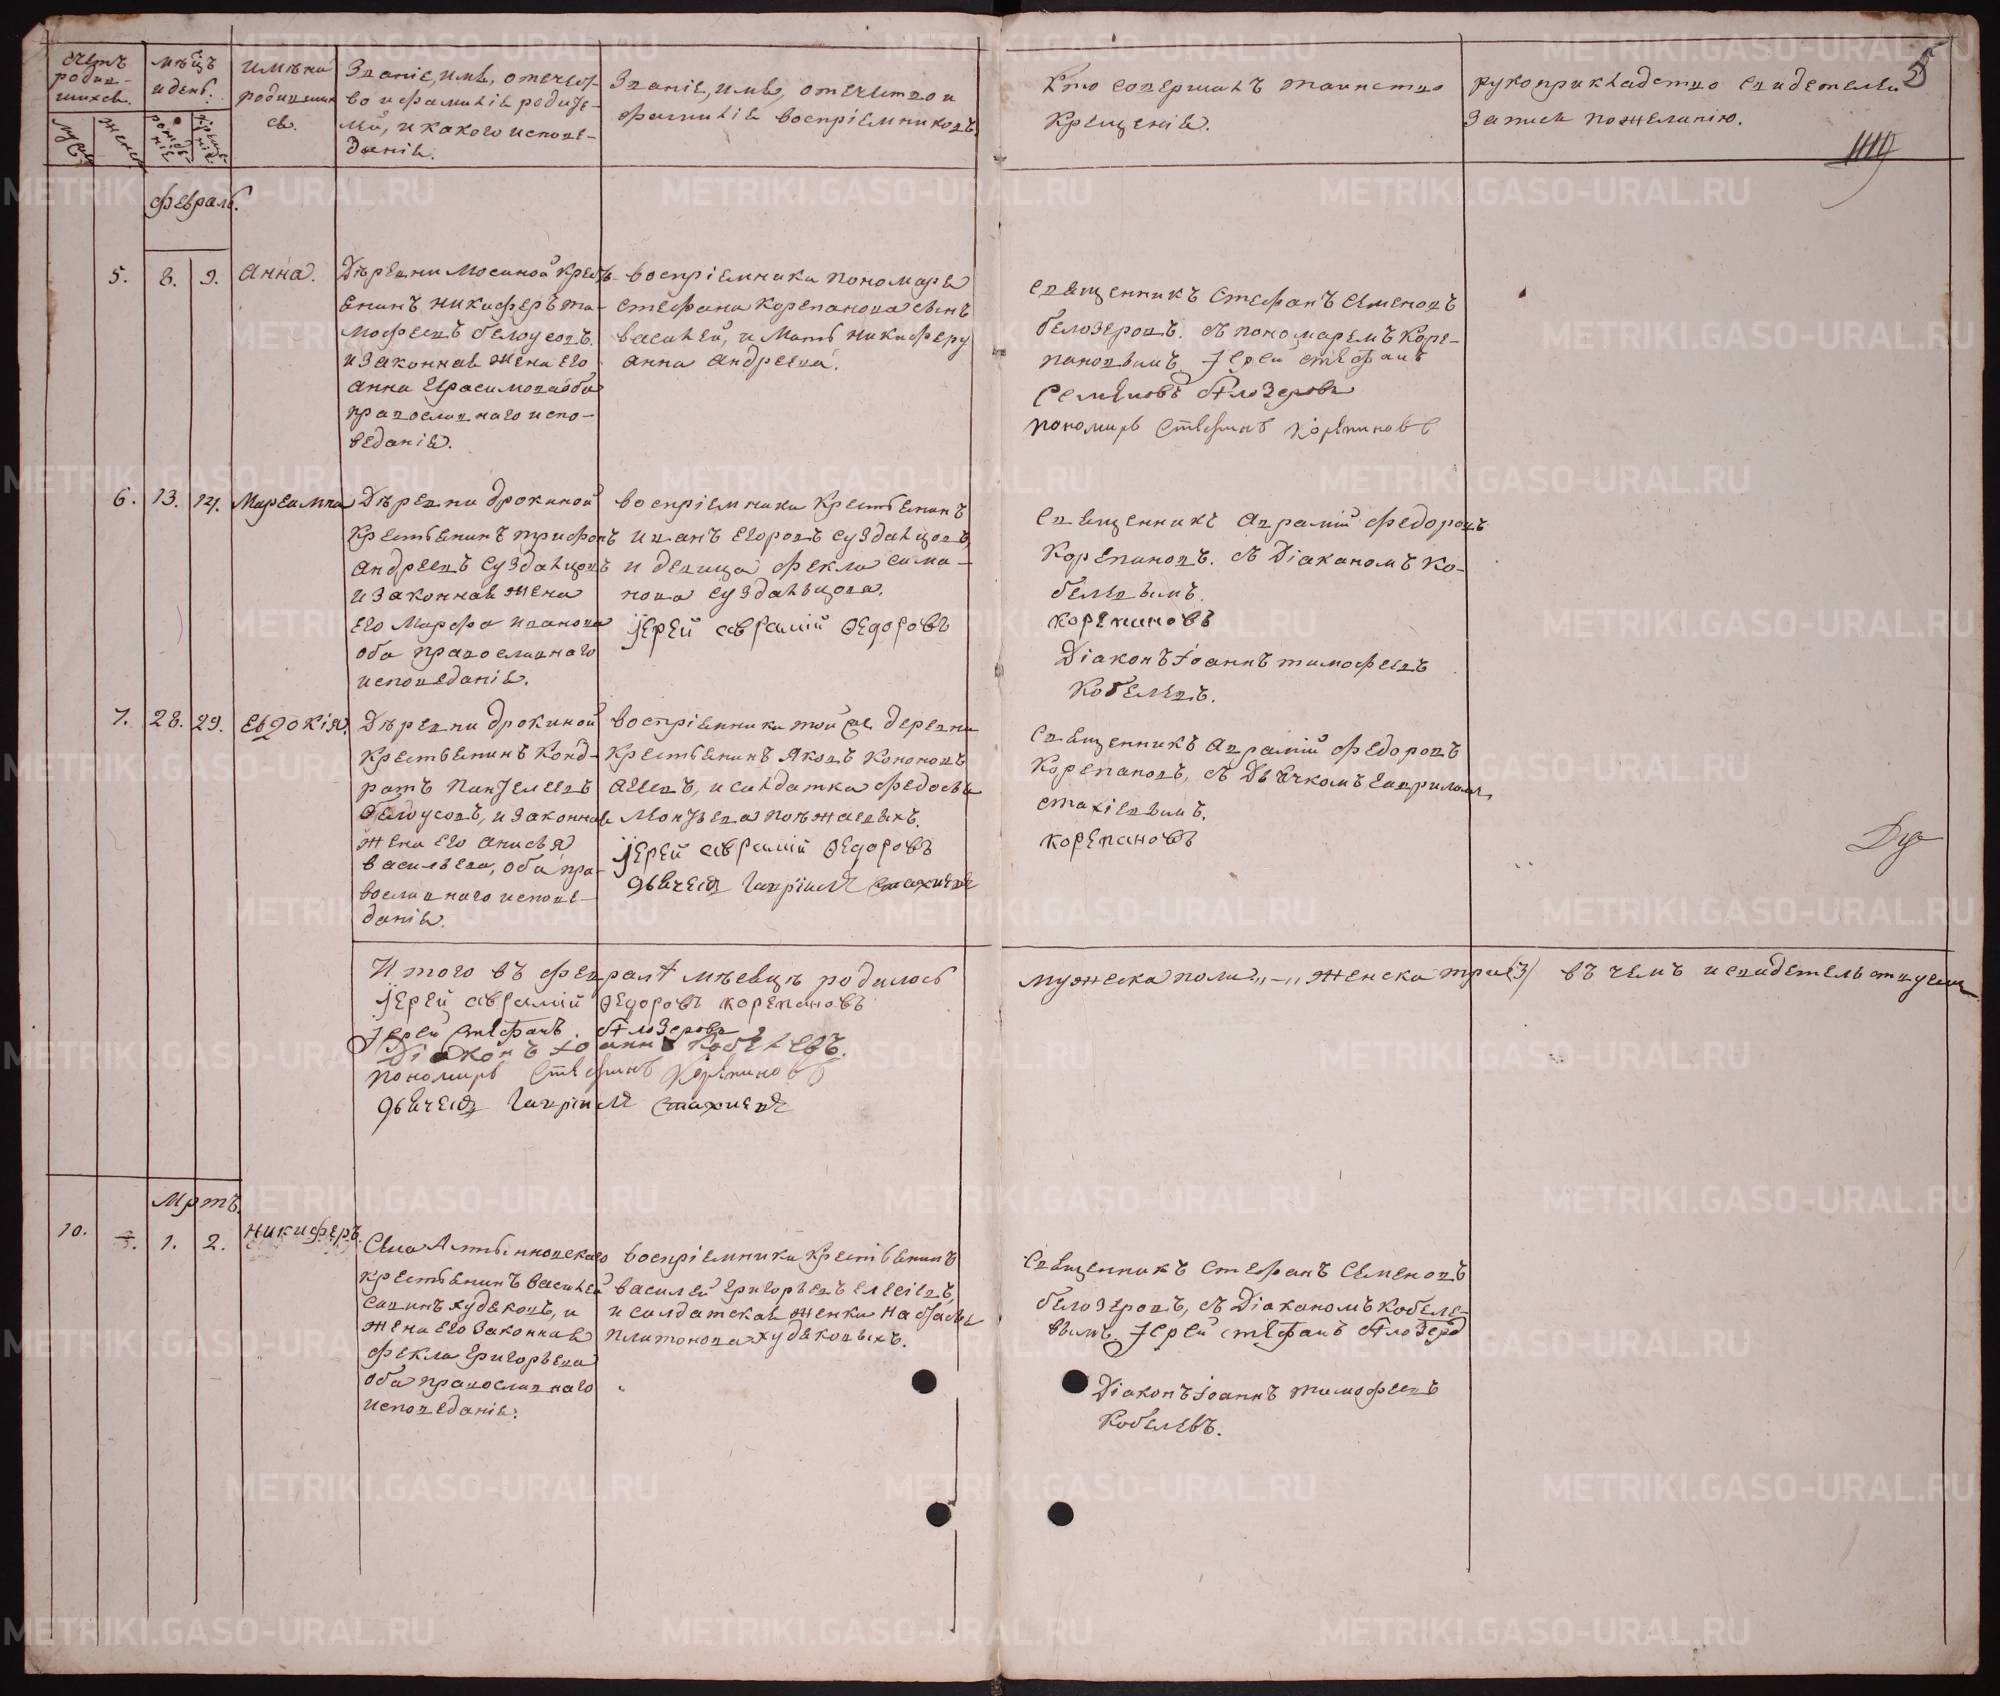 Счетъ родив-шихся.
Мѣцъ и день.
Имѣна родившихся.
Званіе, имя, отечество и фамилія родителей, и какого исповеданія.
Званіе, имя, отечество и фамилія воспріемниковъ.
Кто совершалъ таинство крещенія.
рукоприкладство свидетелей записи по желанію.
5
муж
женск
рожде-нія
креще-нія
февраль.
5. 8. 9. Анна.
Дѣревни Мосиной крестъ-
янинъ Никифоръ Ти-
мофеевъ белоусовъ.
и законная жена его
анна Герасимова оба
православнаго испо-
веданія.
воспріемники пономаря
стефана корепанова сынъ
василей, и мать никифору
анна андреева.
священникъ стефанъ семеновъ
белозеровъ. съ пономаремъ коре-
пановымъ. Іерей стефанъ
семеновъ бѣлозеровъ
пономарь стефанъ корепановъ
6. 13. 14. Мареамна
Дѣревни дрокиной
крестьянинъ трифонъ
андреевъ суздальцовъ
и законная жена
его Марфа иванова
оба православнаго
исповеданія.
воспріемники крестьянинъ
иванъ егоровъ суздальцовъ,
и девица фекла сима-
нова суздальцова.
іерей аврамій Ѳедоровъ
священникъ аврамій федоровъ
корепановъ. съ Діакономъ ко-
белевымъ.
корепановъ
Діаконъ іоаннъ тимофеевъ
кобелевъ.
7. 28. 29. Евдокія.
Дѣревни дрокиной
крестьянинъ конд-
ратъ пантелеевъ
белоусовъ, и законная
жена его анисья
васильева, оба пра-
вославнаго испове-
данія.
воспріемники той же деревни
крестьянинъ яковъ кононовъ
, и салдатка федосья
.
іерей аврамій Ѳедоровъ
дьячекъ гавріилъ стахиевъ
священникъ аврамій федоровъ
корепановъ, съ Дьячкомъ гавриломъ
стахіевымъ.
корепановъ
Итого въ февралѣ мѣсяцѣ родилось мужеска пола „–„ женска три /3/ въ чемъ и свидетельствуемъ
іерей аврамій Ѳедоровъ корепановъ
Іерей стефанъ бѣлозеровъ
Діаконъ іоаннъ кобелевъ.
пономарь стефанъ корепановъ
дьячекъ гавріилъ стахиевъ
Мртъ.
10. 1. 2. никифоръ.
крестьянинъ василей
савинъ худяковъ, и
жена его законная
фекла григорьева
оба православнаго
исповеданія.
воспріемники крестьянинъ
василей григорьевъ елесіевъ,
и салдатская женка настасья
платонова худяковыхъ.
священникъ стефанъ семеновъ
белозеровъ, съ Діакономъ кобеле-
вымъ, Іерей стефанъ бѣлозеро
Діаконъ іоаннъ тимофеевъ
кобелевъ.
METRIKI.GASO-URAL.RU